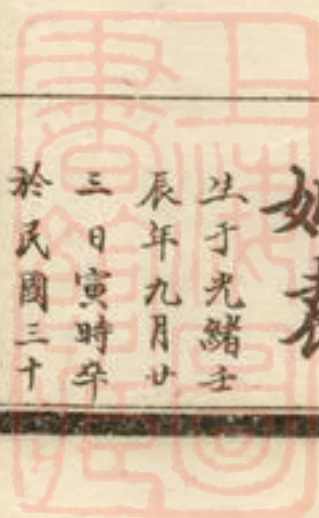 生于光緒壬
辰年九月廿
三日寅時卒
於民國三十